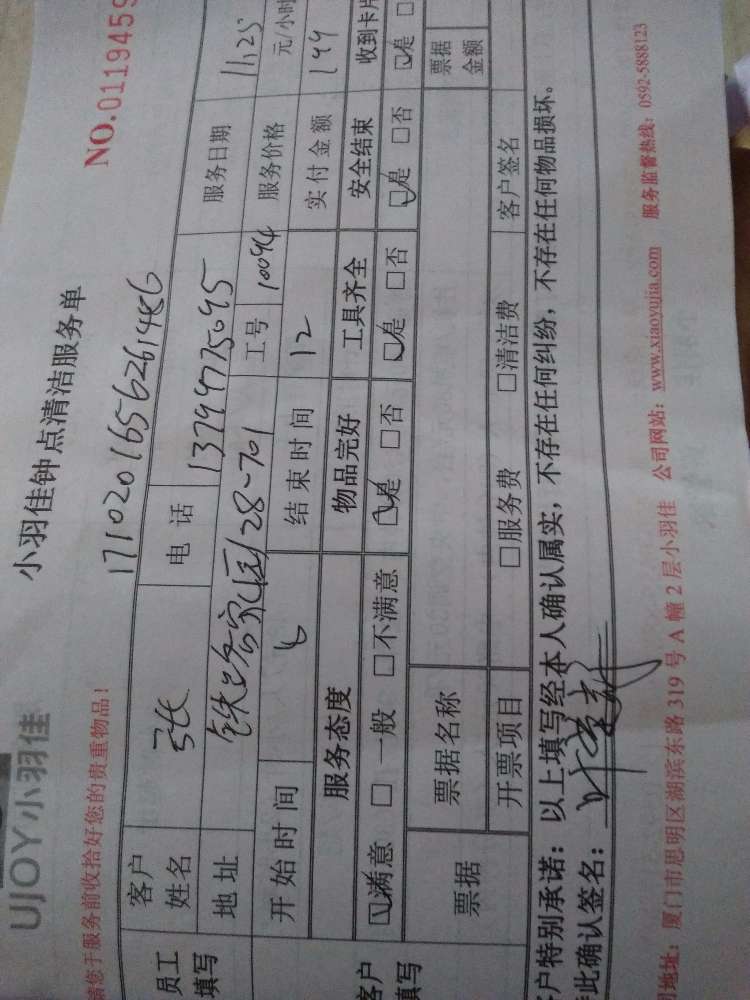 UJOY小羽佳
小羽佳钟点清洁服务单
NO.0119459
请您于服务前收拾好您的贵重物品!
1710201656261486
员工填写
客户姓名 张 电话 13799775095 服务日期 11.25
地址 铁路家园128-701 工号 10094 服务价格 元/小时
开始时间 8 结束时间 12 实付金额 149
客户填写
服务态度 物品完好 工具齐全 安全结束 收到卡片
☑满意 □一般 □不满意 ☑是 □否 ☑是 □否 ☑是 □否 ☑是 □
票据 票据名称 票据金额
开票项目 □服务费 □清洁费 客户签名
户特别承诺:以上填写经本人确认属实,不存在任何纠纷,不存在任何物品损坏。
此确认签名:
地址:厦门市思明区湖滨东路 319 号 A 幢 2 层小羽佳 公司网站:www.xiaoyujia.com 服务监督热线:0592-5888123